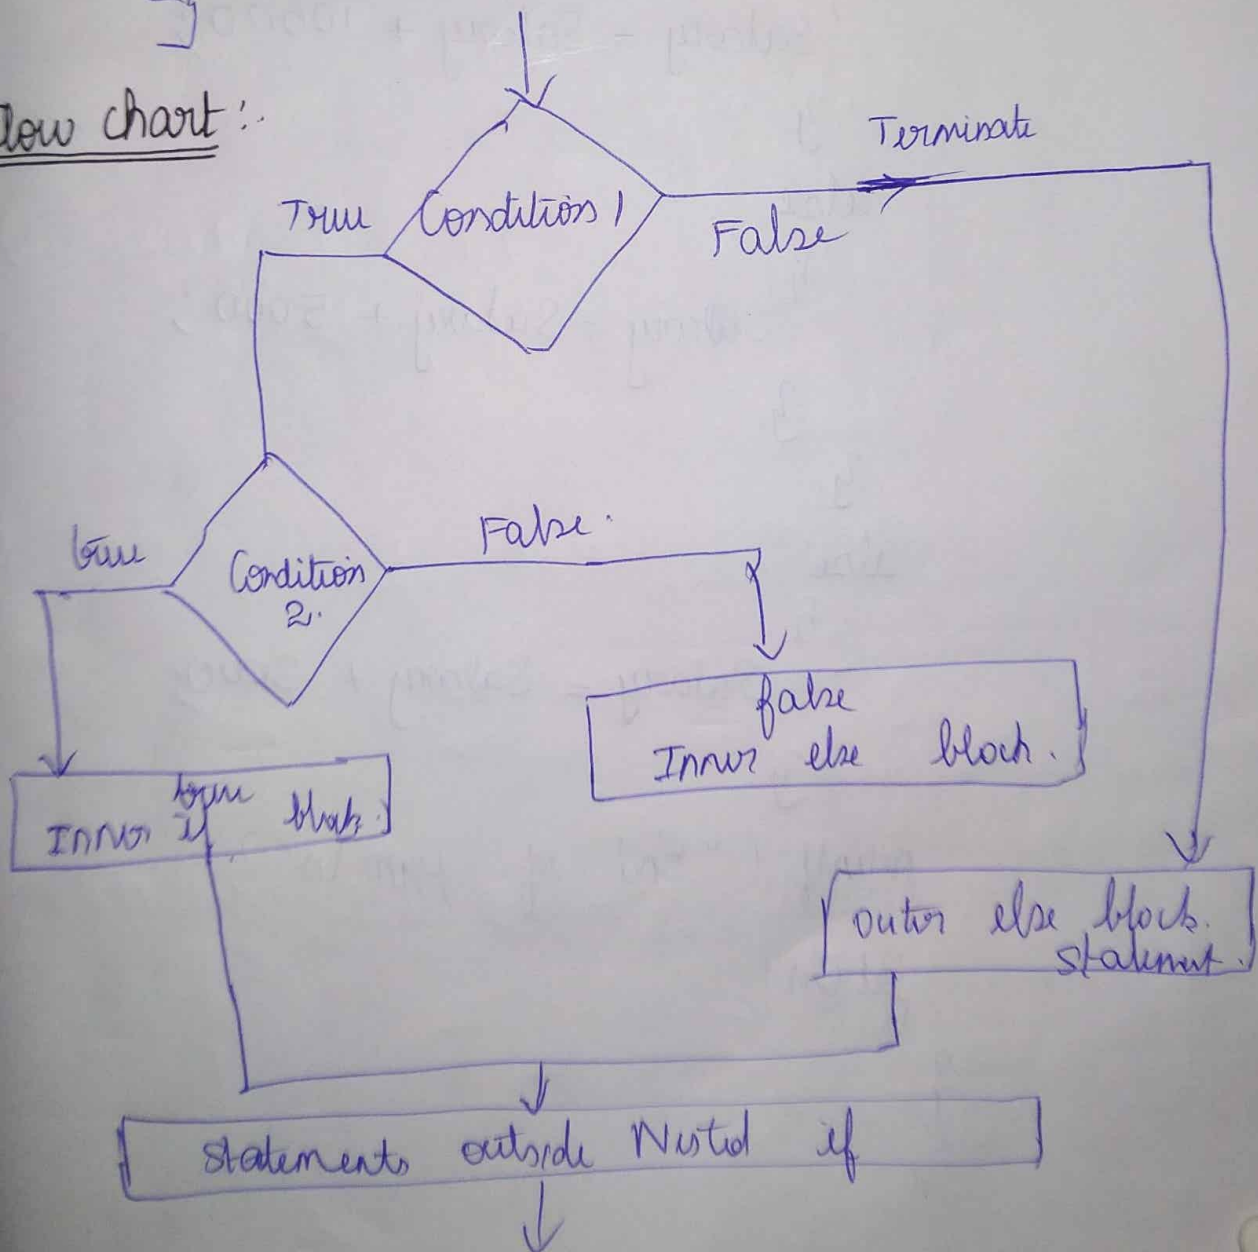 Flow chart :-
Terminate
True
Condition 1
False
true
Condition
2.
False.
false
Inner else block.
true
Inner if block.
outer else block.
statement.
statements outside Nested if